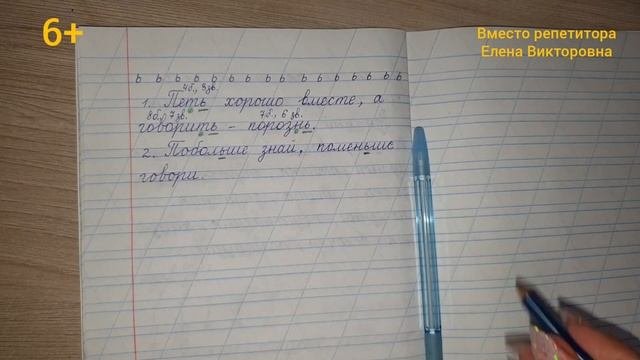 6+
Вместо репетитора
Елена Викторовна
ь ь ь ь ь ь ь ь ь ь ь ь ь ь ь ь
4б., 3зв.
1. Петь хорошо вместе, а
8б., 7зв. 7б., 6 зв.
говорить - порознь.
2. Побольше знай, поменьше
говори.